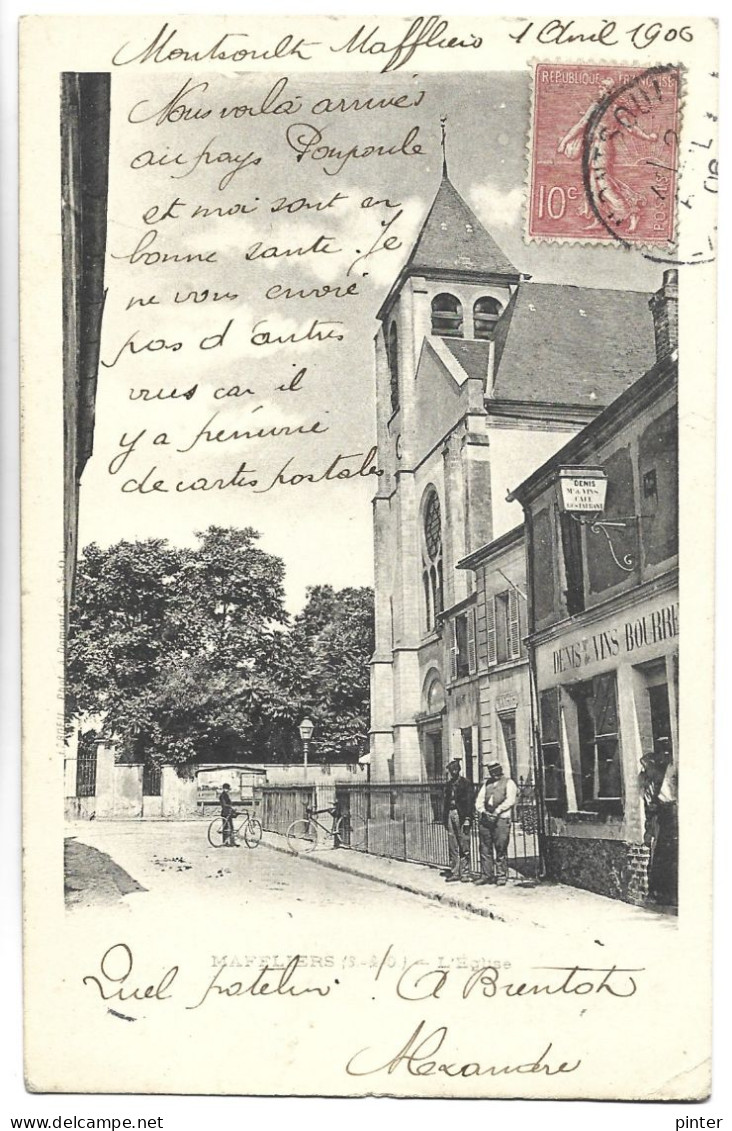 Montsoult Maffliers 1 Avril 1906
REPUBLIQUE FRANÇAISE
10c
POSTES
Nous voilà arrivés
au pays Poupoule
et moi sont en
bonne santé. Je
ne vous envoie
pas d'autres
vues car il
y a pénurie
de cartes postales
DENIS
Md. VINS
CAFÉ
RESTAURANT
DENIS Md DE VINS BOURRE
MAFFLIERS (S.-&-O.) — L'Église
Quel patelin! A Bientôt
Alexandre
pinter